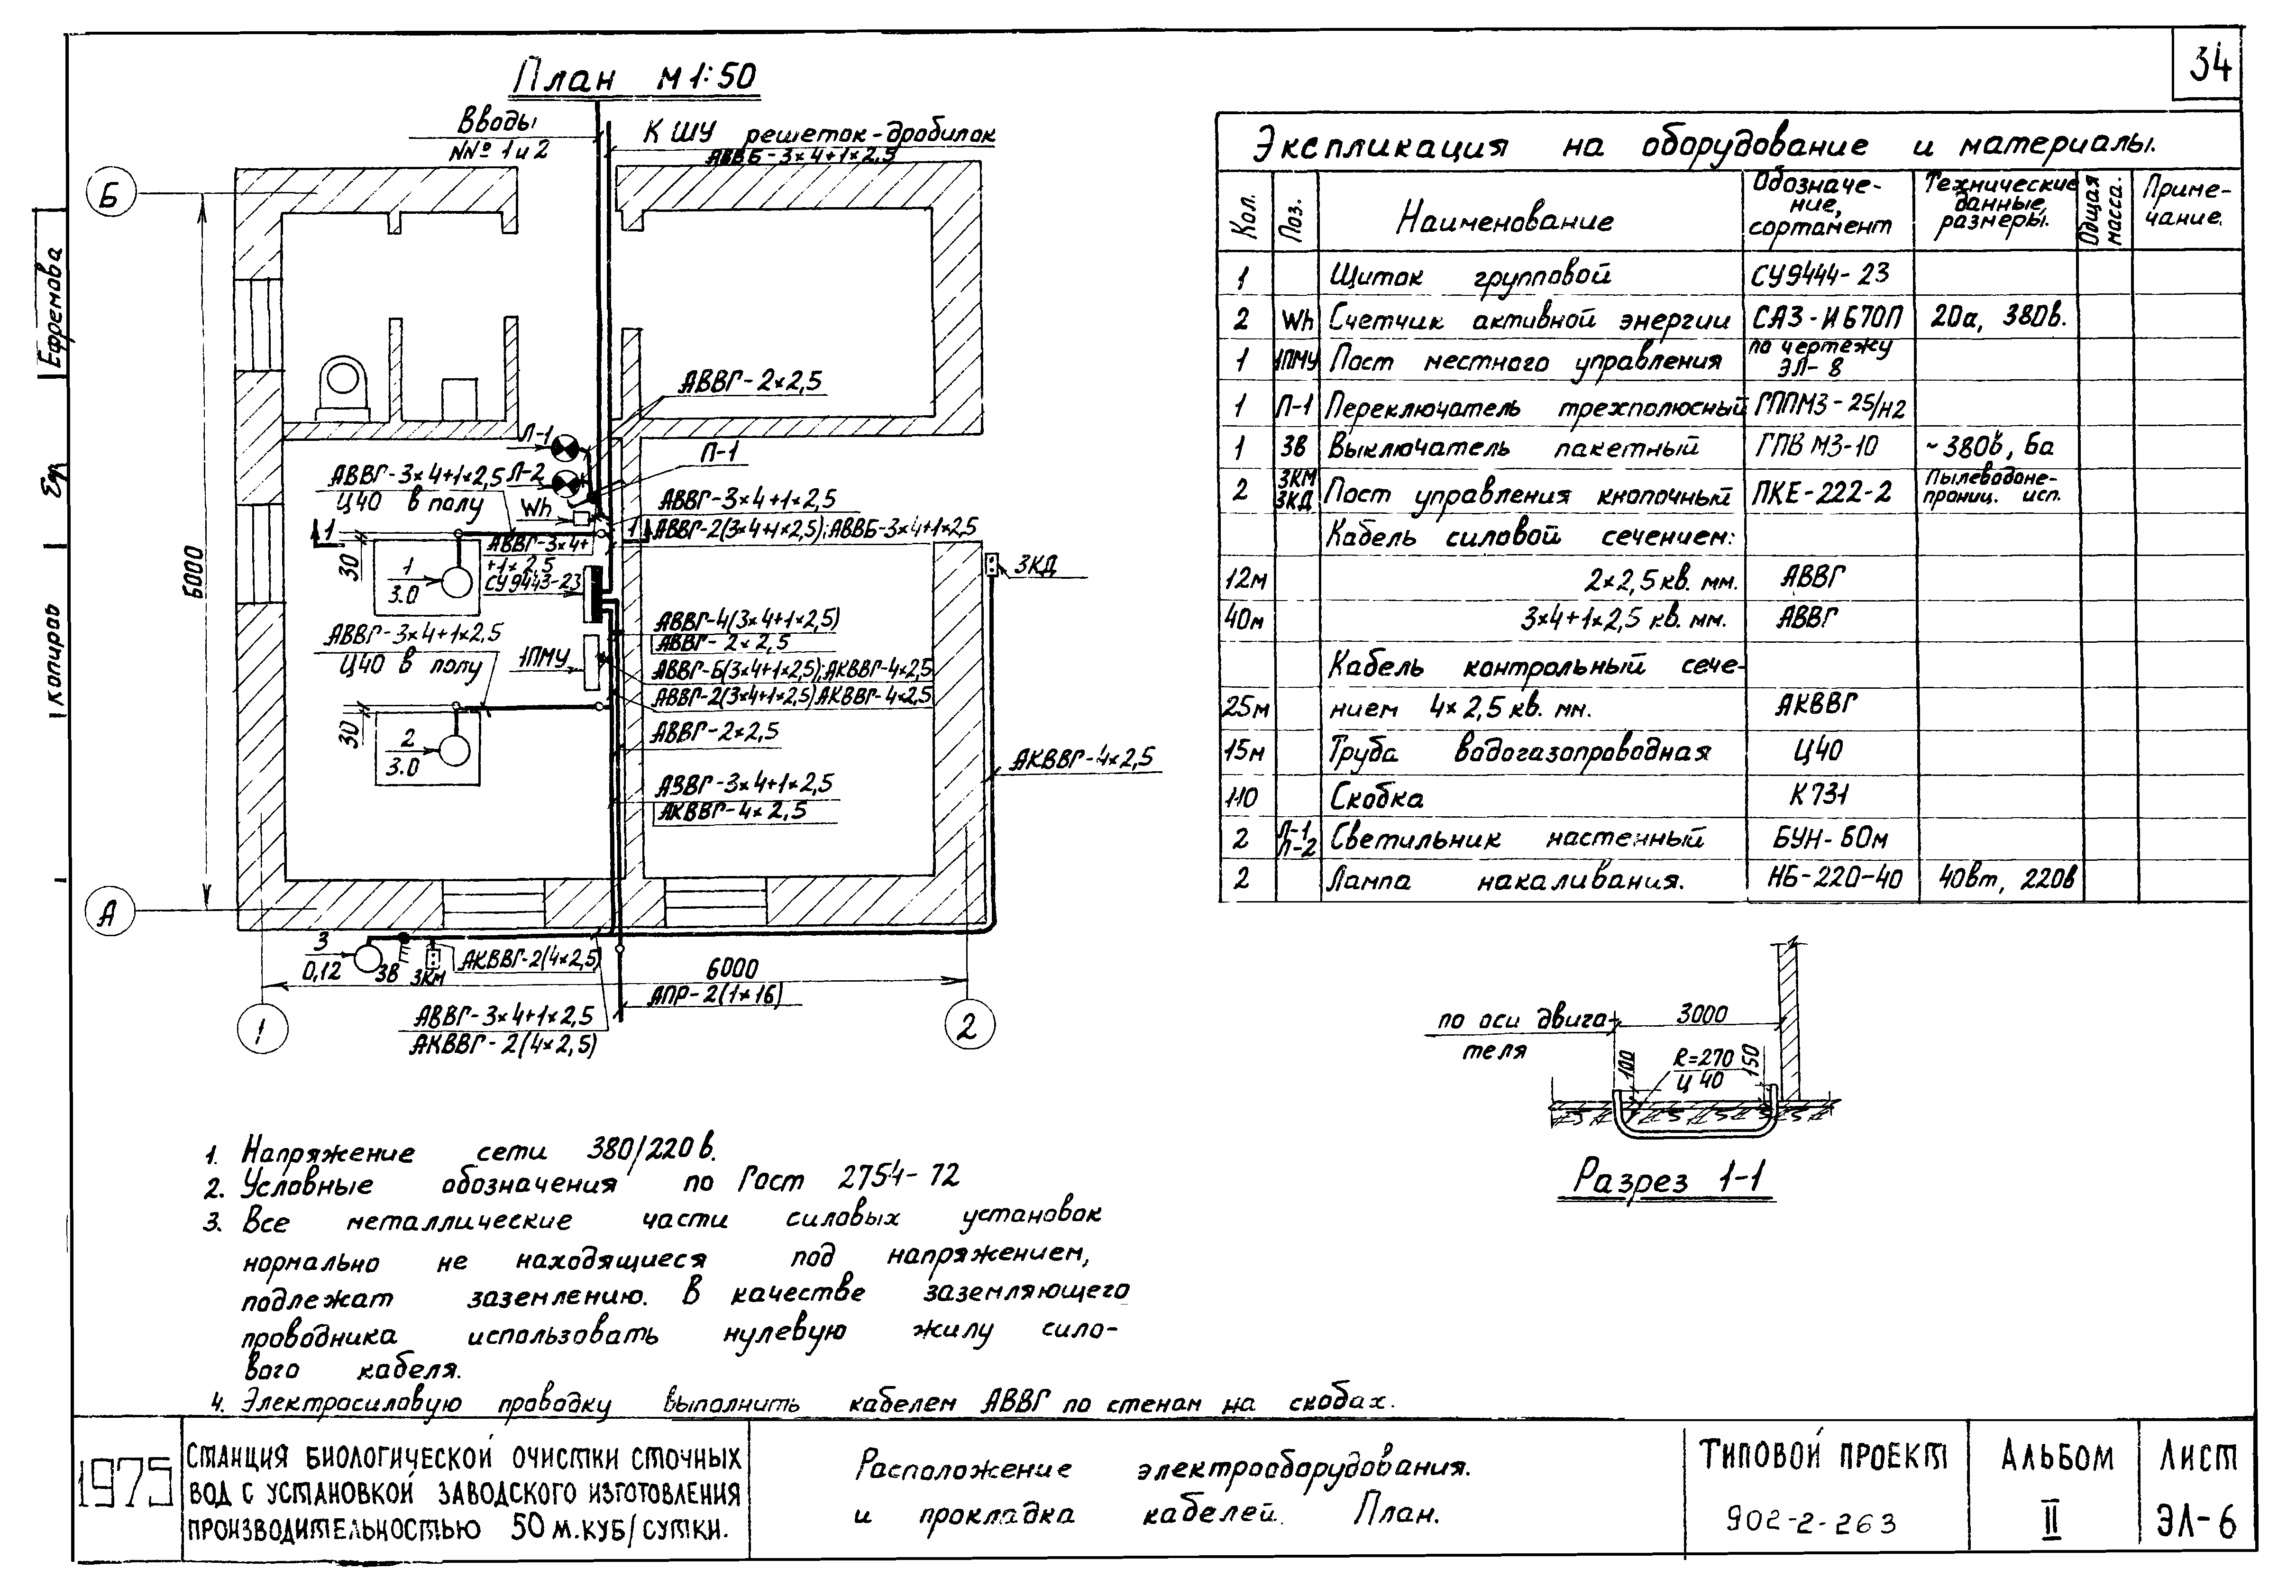 34
План М 1:50
Вводы
NNº 1 и 2
К ШУ решеток-дробилок
АВВБ-3×4+1×2,5
Б
6000
А
АВВГ-2×2,5
Л-1
П-1
АВВГ-3×4+1×2,5
Ц40 в полу
Л-2
Wh
АВВГ-3×4+1×2,5
АВВГ-2(3×4+1×2,5); АВВБ-3×4+1×2,5
1
1
30
АВВГ-3×4+
+1×2,5
СУ9443-23
1
3.0
ЗКД
АВВГ-3×4+1×2,5
Ц40 в полу
1ПМУ
АВВГ-4(3×4+1×2,5)
АВВГ-2×2,5
АВВГ-Б(3×4+1×2,5); АКВВГ-4×2,5
АВВГ-2(3×4+1×2,5) АКВВГ-4×2,5
30
2
3.0
АВВГ-2×2,5
АКВВГ-4×2,5
АЗВГ-3×4+1×2,5
АКВВГ-4×2,5
3
0,12
ЗВ
ЗКМ
АКВВГ-2(4×2,5)
6000
АПР-2(1×16)
1
2
АВВГ-3×4+1×2,5
АКВВГ-2(4×2,5)
Экспликация на оборудование и материалы.
Кол. Поз. Наименование Обозначе-ние, сортамент Технические данные, размеры. Общая масса. Приме-чание.
1 Щиток групповой СУ9444-23
2 Wh Счетчик активной энергии СА3-И670П 20а, 380в.
1 1ПМУ Пост местного управления по чертежу ЭЛ-8
1 П-1 Переключатель трехполюсный ГППМ3-25/н2
1 ЗВ Выключатель пакетный ГПВМ3-10 ~380в, 6а
2 ЗКМ ЗКД Пост управления кнопочный ПКЕ-222-2 Пылеводоне-прониц. исп.
Кабель силовой сечением:
12м 2×2,5 кв. мм. АВВГ
40м 3×4+1×2,5 кв. мм. АВВГ
Кабель контрольный сече-
25м нием 4×2,5 кв. мм. АКВВГ
15м Труба водогазопроводная Ц40
110 Скобка К731
2 Л-1 Л-2 Светильник настенный БУН-60м
2 Лампа накаливания. НБ-220-40 40вт, 220в
по оси двига-
теля
3000
100
R=270
Ц 40
150
Разрез 1-1
1. Напряжение сети 380/220 в.
2. Условные обозначения по Гост 2754-72
3. Все металлические части силовых установок
нормально не находящиеся под напряжением,
подлежат заземлению. В качестве заземляющего
проводника использовать нулевую жилу сило-
вого кабеля.
4. Электросиловую проводку выполнить кабелем АВВГ по стенам на скобах.
Ефремова
Еф
Копиров
1975
СТАНЦИЯ БИОЛОГИЧЕСКОЙ ОЧИСТКИ СТОЧНЫХ
ВОД С УСТАНОВКОЙ ЗАВОДСКОГО ИЗГОТОВЛЕНИЯ
ПРОИЗВОДИТЕЛЬНОСТЬЮ 50 М.КУБ/СУТКИ.
Расположение электрооборудования.
и прокладка кабелей. План.
ТИПОВОЙ ПРОЕКТ
902-2-263
АЛЬБОМ
II
ЛИСТ
ЭЛ-6